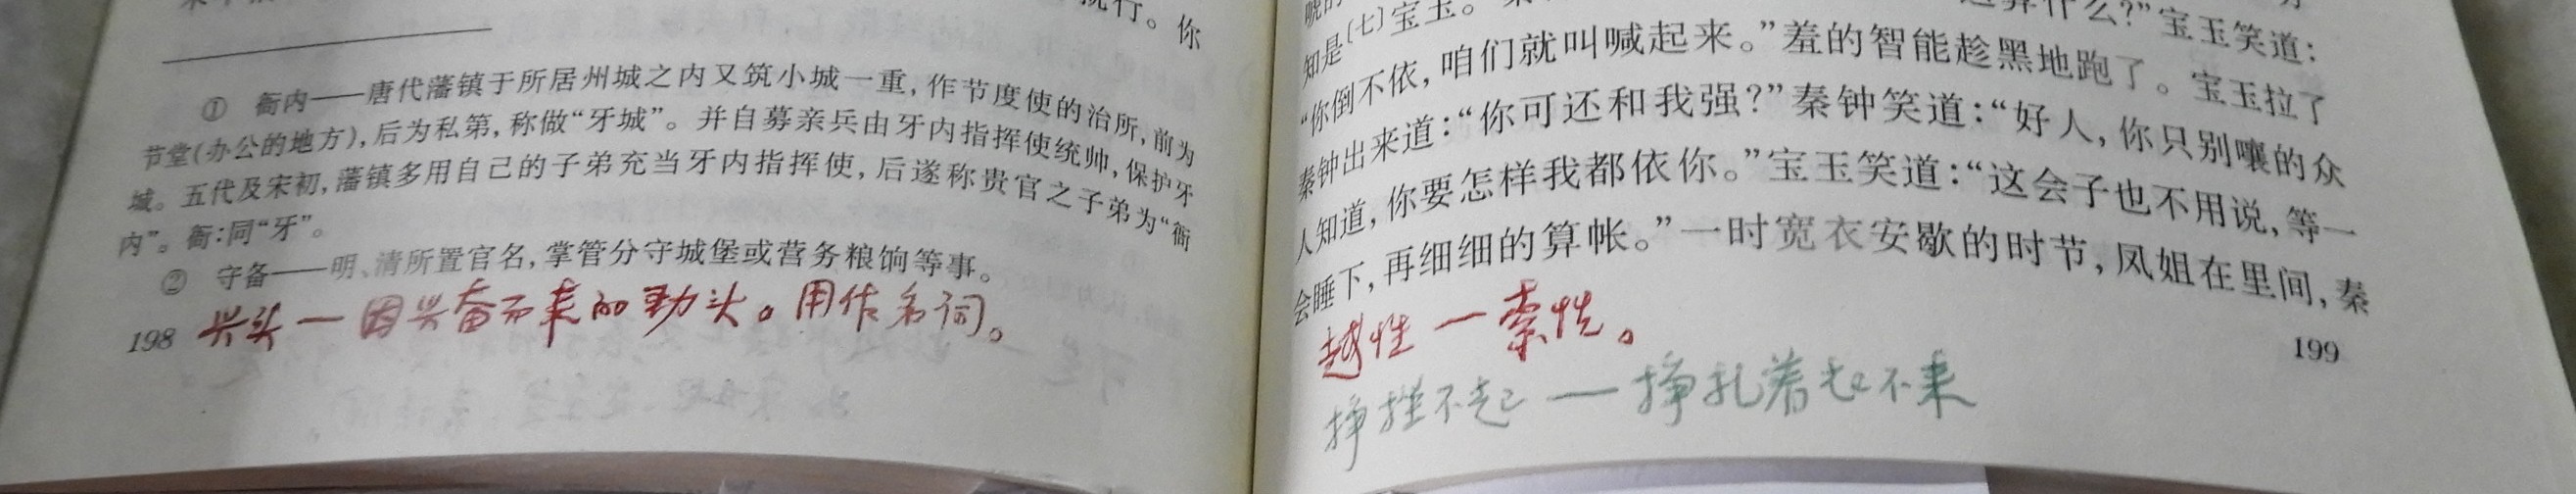 执行。你
① 衙内——唐代藩镇于所居州城之内又筑小城一重，作节度使的治所，前为
节堂(办公的地方)，后为私第，称做“牙城”。并自募亲兵由牙内指挥使统帅，保护牙
城。五代及宋初，藩镇多用自己的子弟充当牙内指挥使，后遂称贵官之子弟为“衙
内”。衙：同“牙”。
② 守备——明、清所置官名，掌管分守城堡或营务粮饷等事。
兴头一因兴奋而来的劲头。用作名词。
198
知是〔七〕宝玉。
算什么？”宝玉笑道：
“你倒不依，咱们就叫喊起来。”羞的智能趁黑地跑了。宝玉拉了
秦钟出来道：“你可还和我强？”秦钟笑道：“好人，你只别嚷的众
人知道，你要怎样我都依你。”宝玉笑道：“这会子也不用说，等一
会睡下，再细细的算帐。”一时宽衣安歇的时节，凤姐在里间，秦
越性一索性。
199
挣挫不起一挣扎着起不来